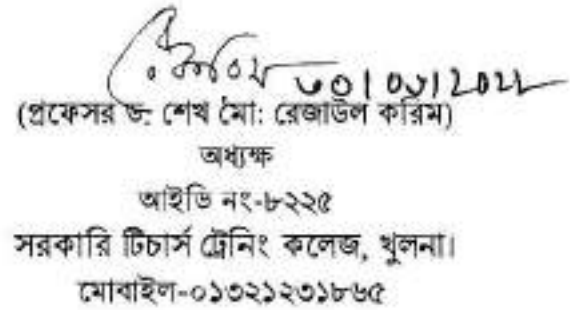 ৩০/০৬/২০২২
(প্রফেসর ড. শেখ মো: রেজাউল করিম)
অধ্যক্ষ
আইডি নং-৮২২৫
সরকারি টিচার্স ট্রেনিং কলেজ, খুলনা।
মোবাইল-০১৩২১২৩১৮৬৫